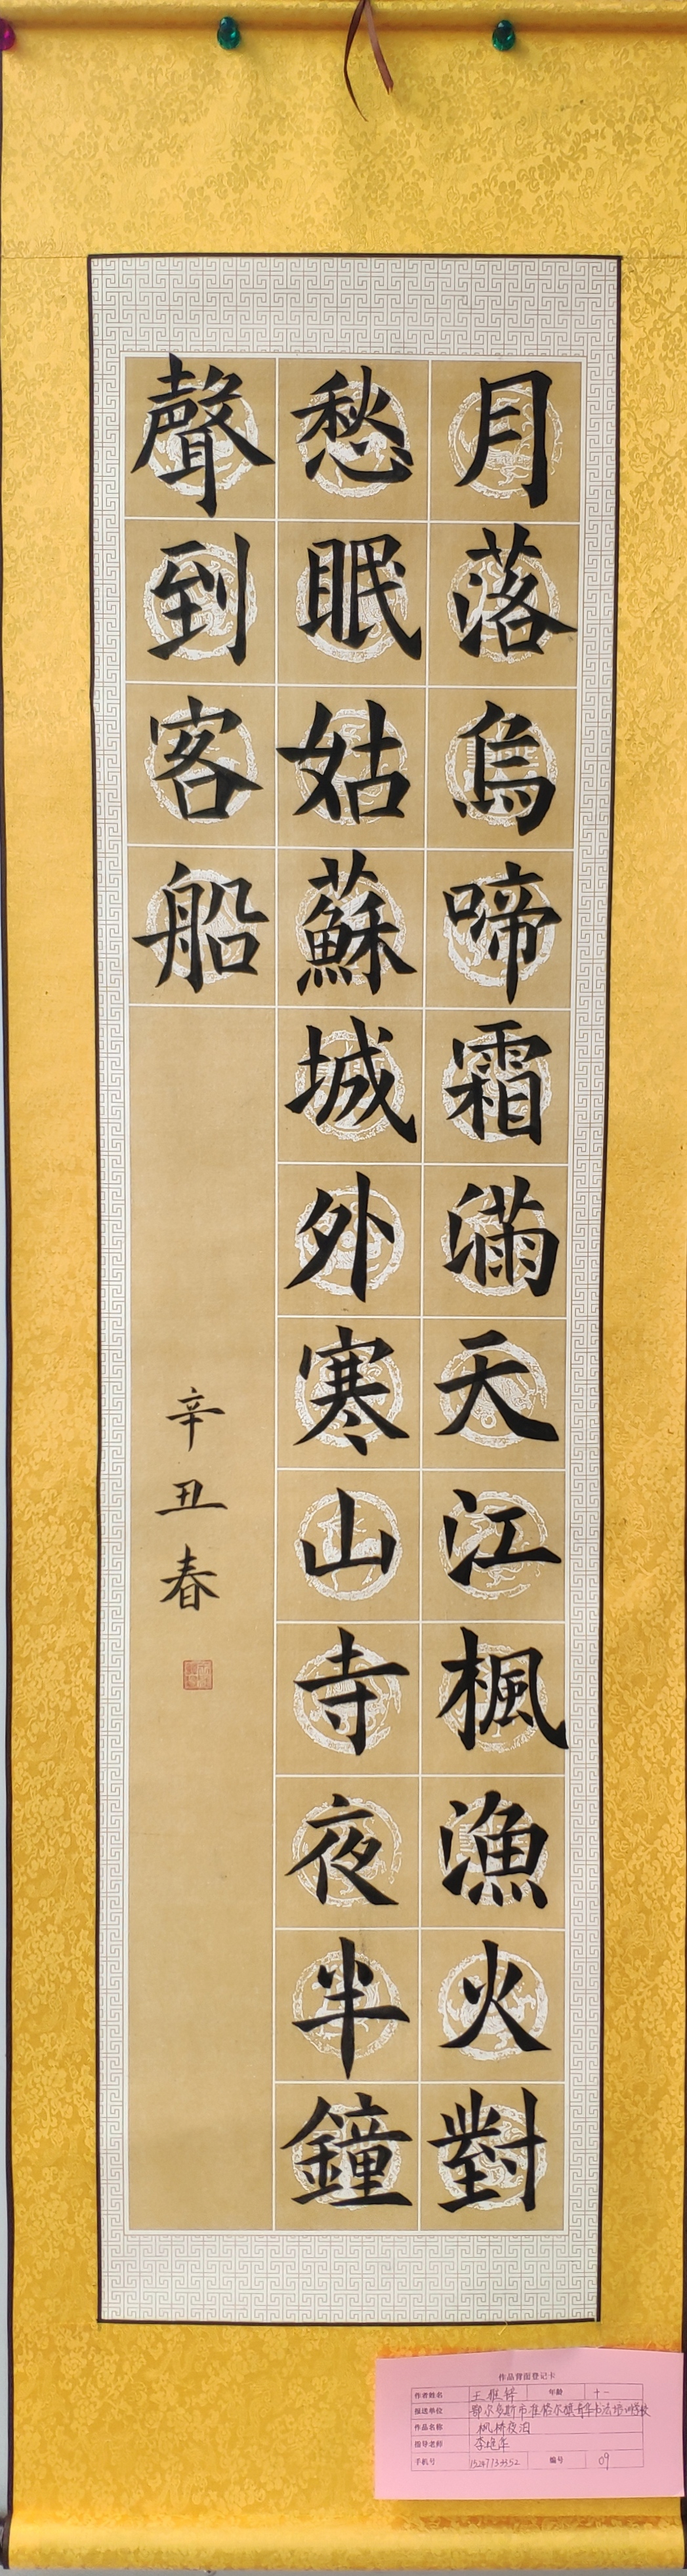 月落烏啼霜滿天江楓漁火對
愁眠姑蘇城外寒山寺夜半鐘
聲到客船
辛丑春
作品背面登记卡
作者姓名 王雅 年龄 十一
报送单位 鄂尔多斯市准格尔旗青华书法培训学校
作品名称 枫桥夜泊
指导老师 李艳
手机号 编号 09